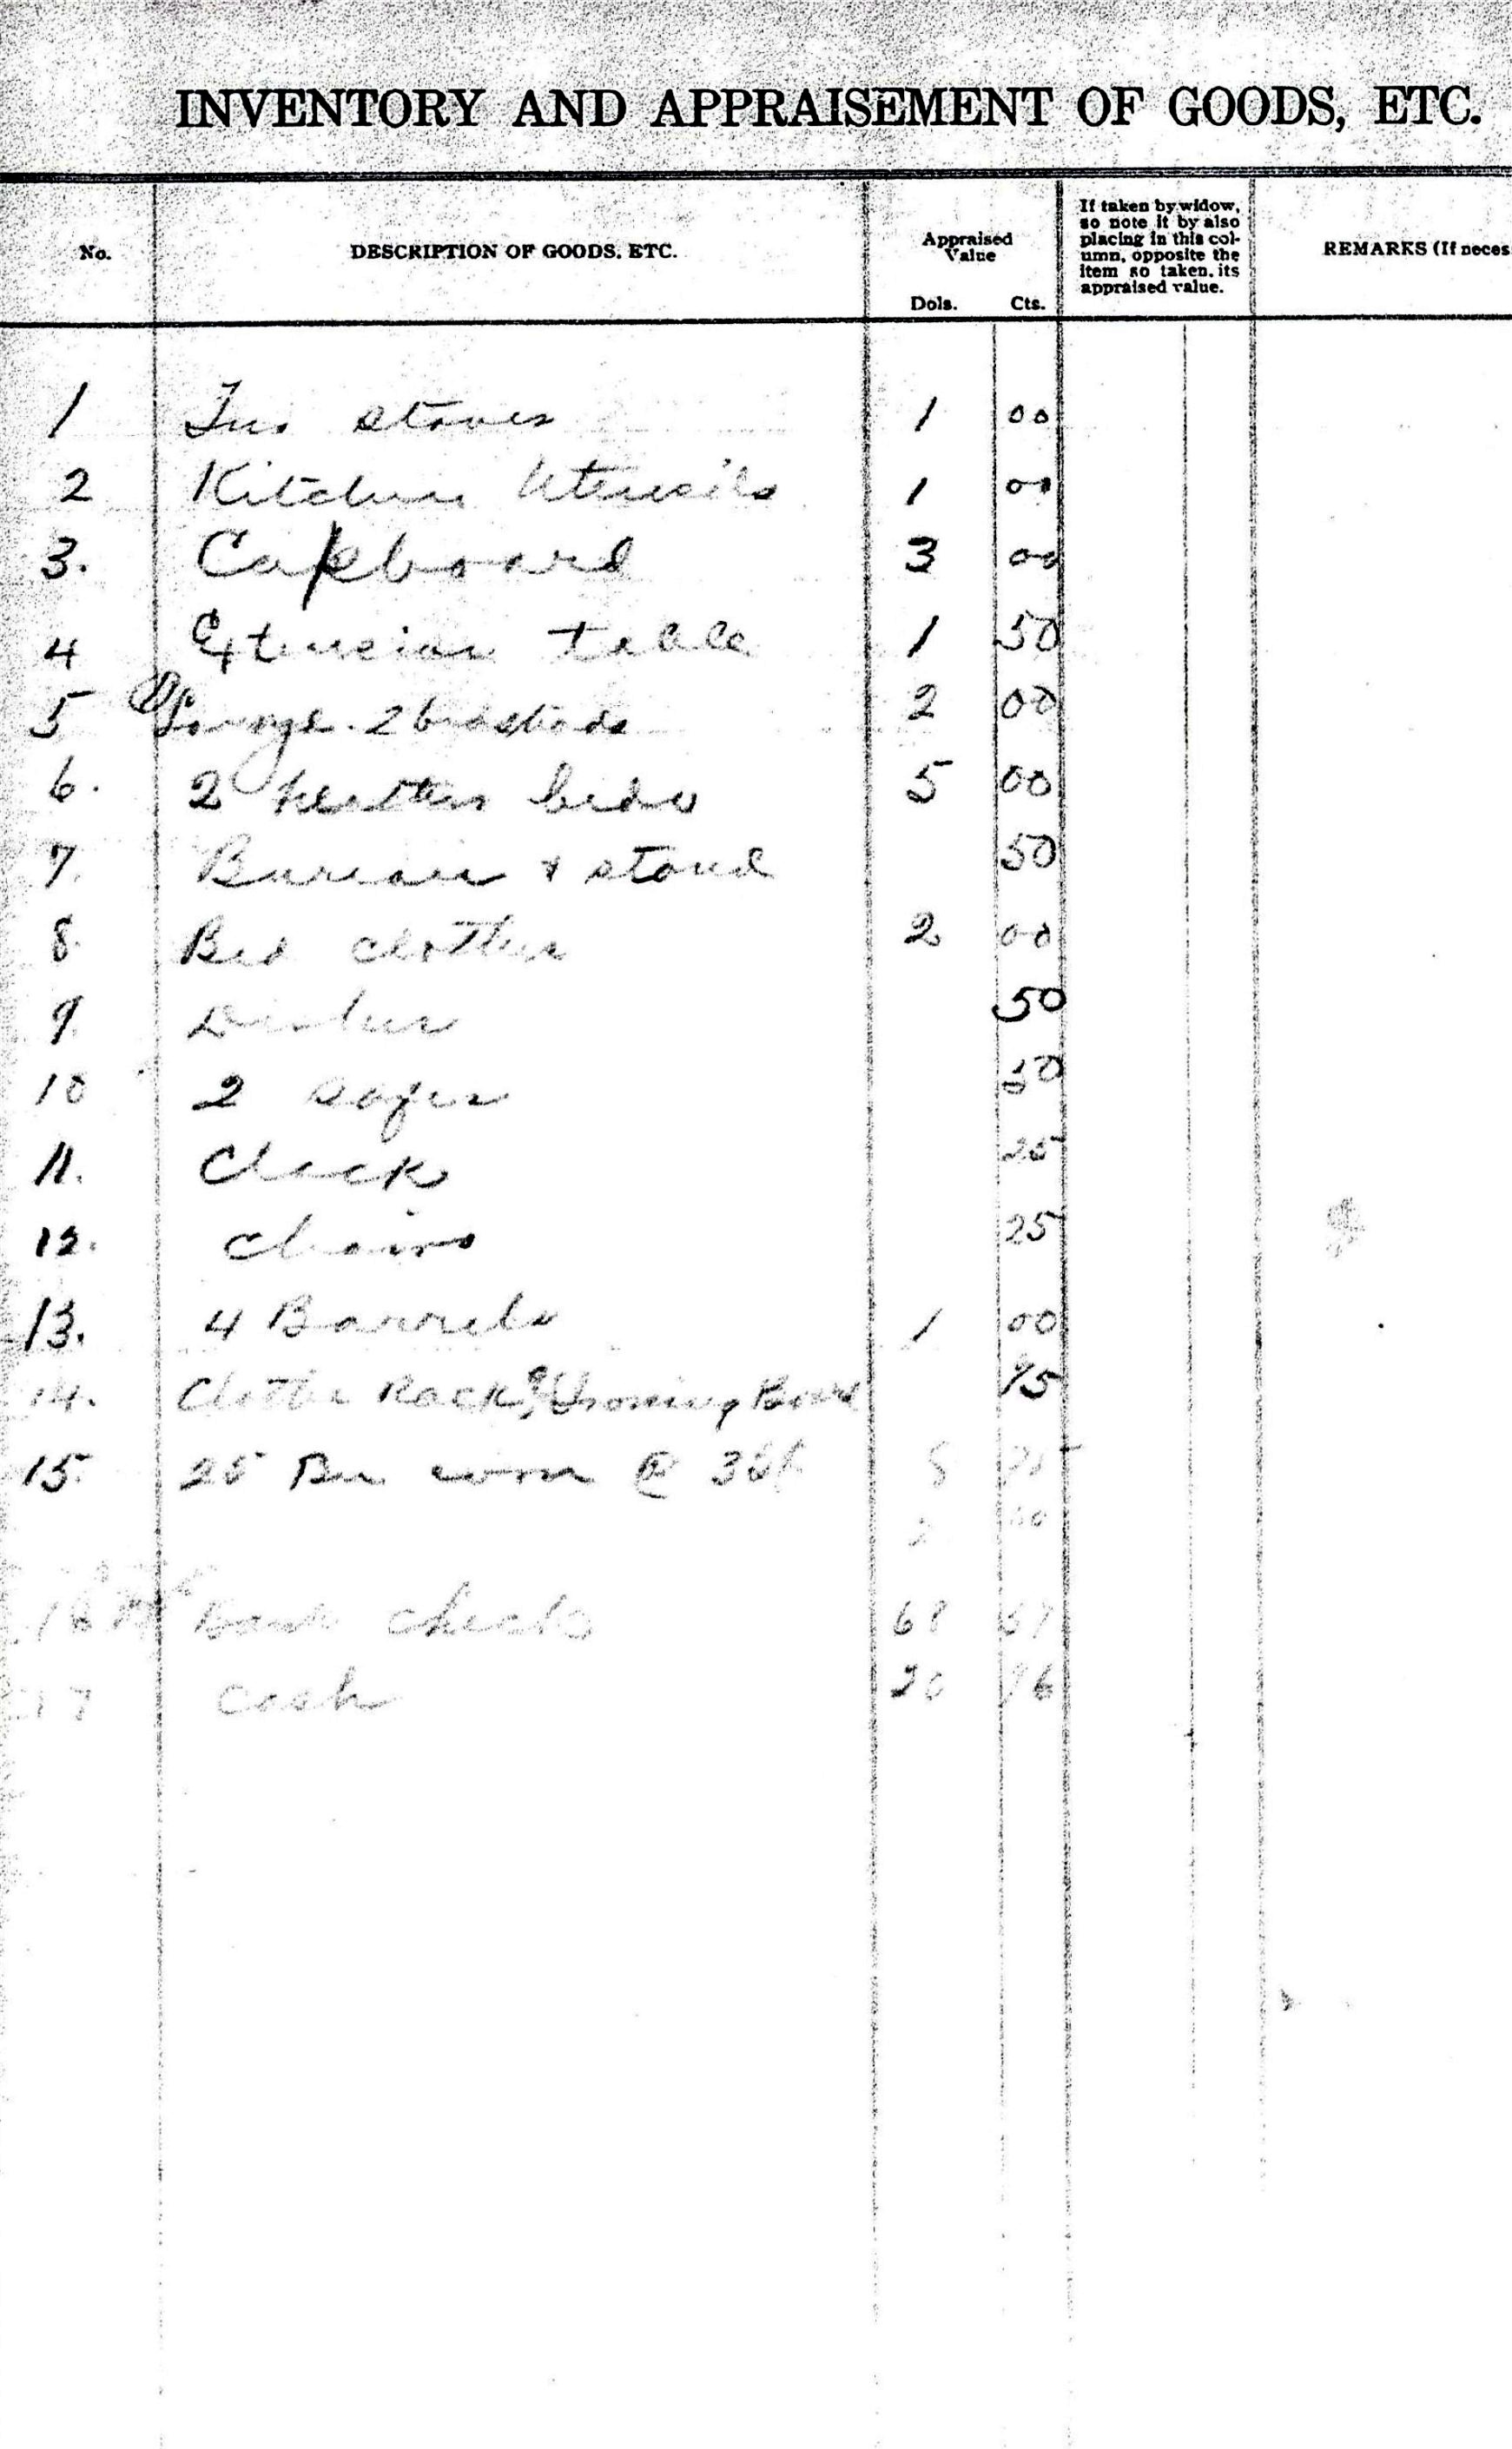 INVENTORY AND APPRAISEMENT OF GOODS, ETC.
No. DESCRIPTION OF GOODS, ETC. Appraised Value Dols. Cts. If taken by widow, so note it by also placing in this column, opposite the item so taken, its appraised value. REMARKS (If neces
1 Two stoves 1 00
2 Kitchen Utensils 1 00
3. Cupboard 3 00
4 Extension table 1 50
5 2 bedsteads 2 00
6. 2 feather beds 5 00
7. Bureau & stand 50
8. Bed clothes 2 00
9. Dishes 50
10 2 safes 50
11. Clock 25
12. Chairs 25
13. 4 Barrels 1 00
14. Clothes Rack & Ironing Board 75
15. 25 Bu corn @ 35¢ 8 75
Bank checks
17 cash